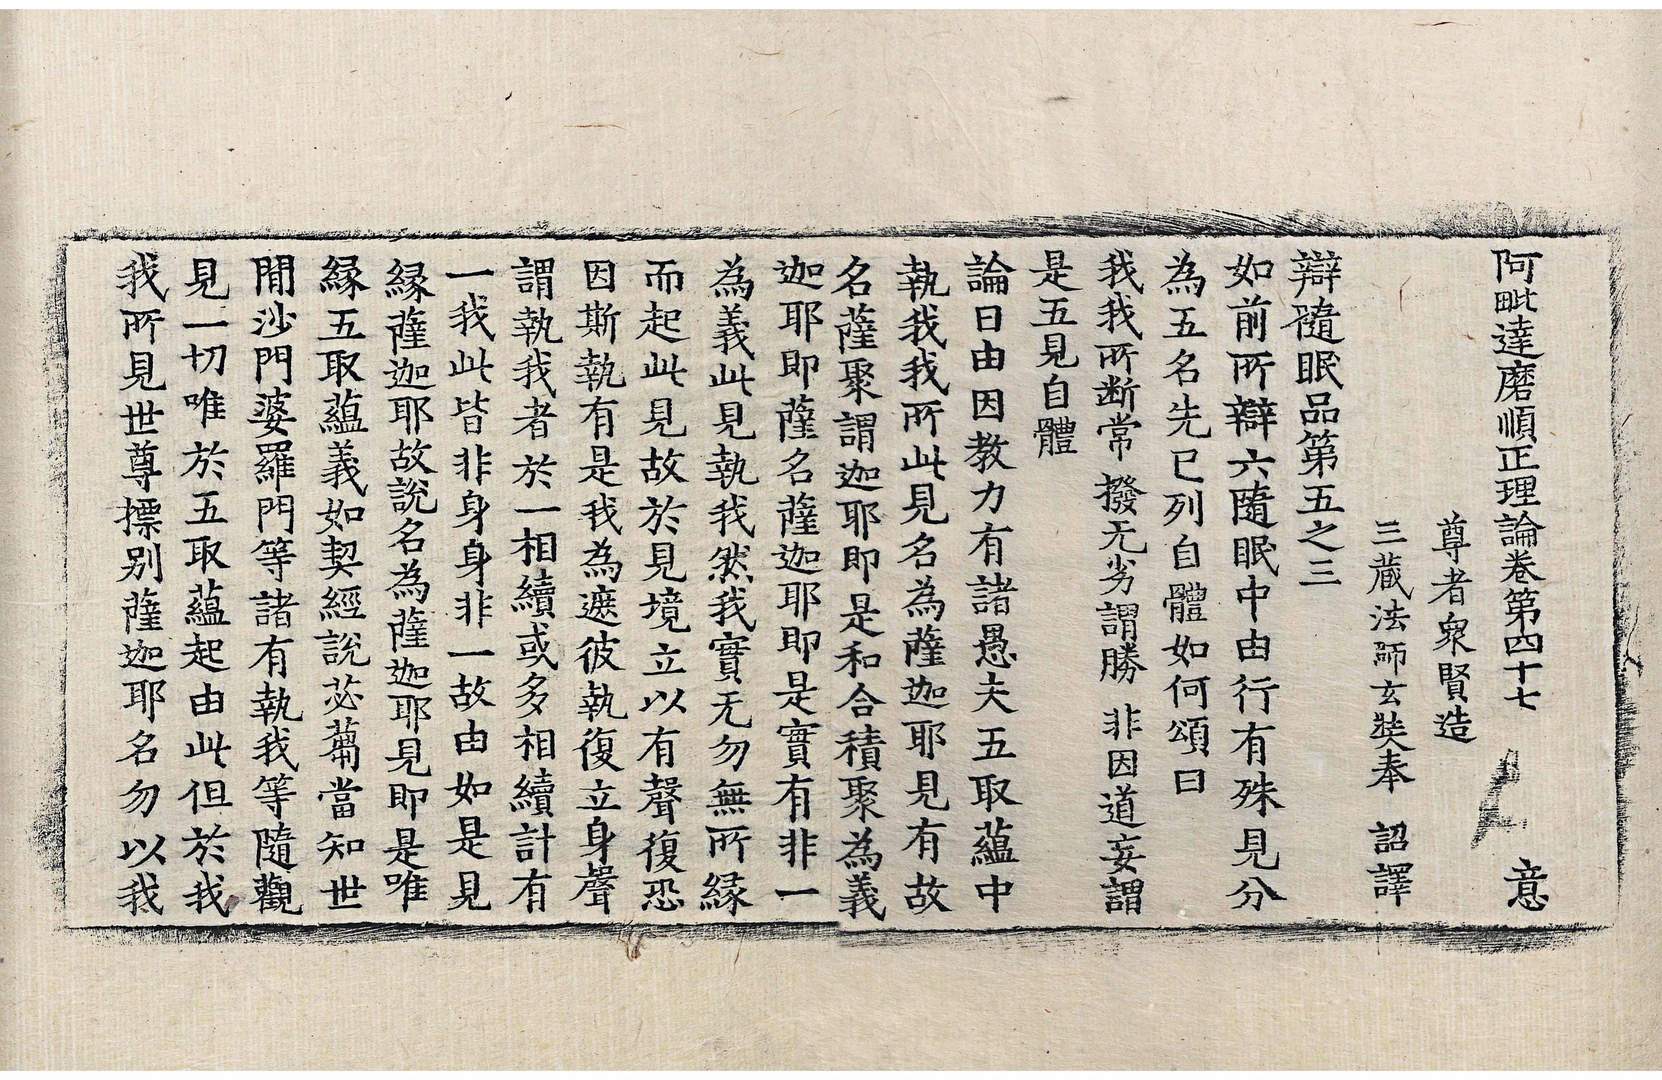 阿毗達磨順正理論卷第四十七 意
尊者衆賢造
三藏法師玄奘奉 詔譯
辯隨眠品第五之三
如前所辯六隨眠中由行有殊見分
為五名先已列自體如何頌曰
我我所断常 撥无劣謂勝 非因道妄謂
是五見自體
論曰由因教力有諸愚夫五取蘊中
執我我所此見名為薩迦耶見有故
名薩聚謂迦耶即是和合積聚為義
迦耶即薩名薩迦耶即是實有非一
為義此見執我然我實无勿無所縁
而起此見故於見境立以有聲復恐
因斯執有是我為遮彼執復立身聲
謂執我者於一相續或多相續計有
一我此皆非身身非一故由如是見
縁薩迦耶故說名為薩迦耶見即是唯
縁五取蘊義如契經說苾蒭當知世
閒沙門婆羅門等諸有執我等隨觀
見一切唯於五取蘊起由此但於我
我所見世尊摽别薩迦耶名勿以我